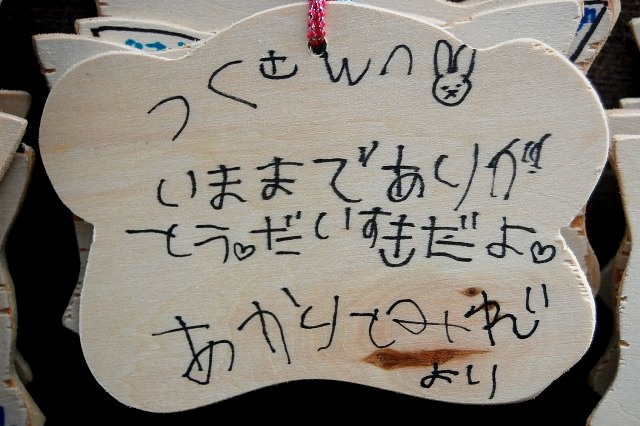 つくせんへ
いままでありが
とう♡だいすきだよ♡
あかりとみれい
より